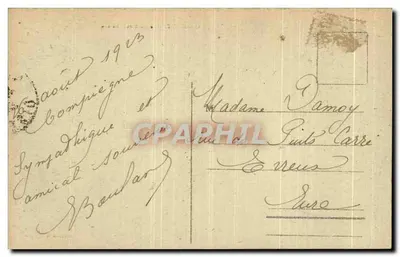 août 1923
Compiègne.
Sympathique et
amical souvenir
Madame Damoy
rue du Puits Carré
Evreux
Eure
CPA-PHOTO